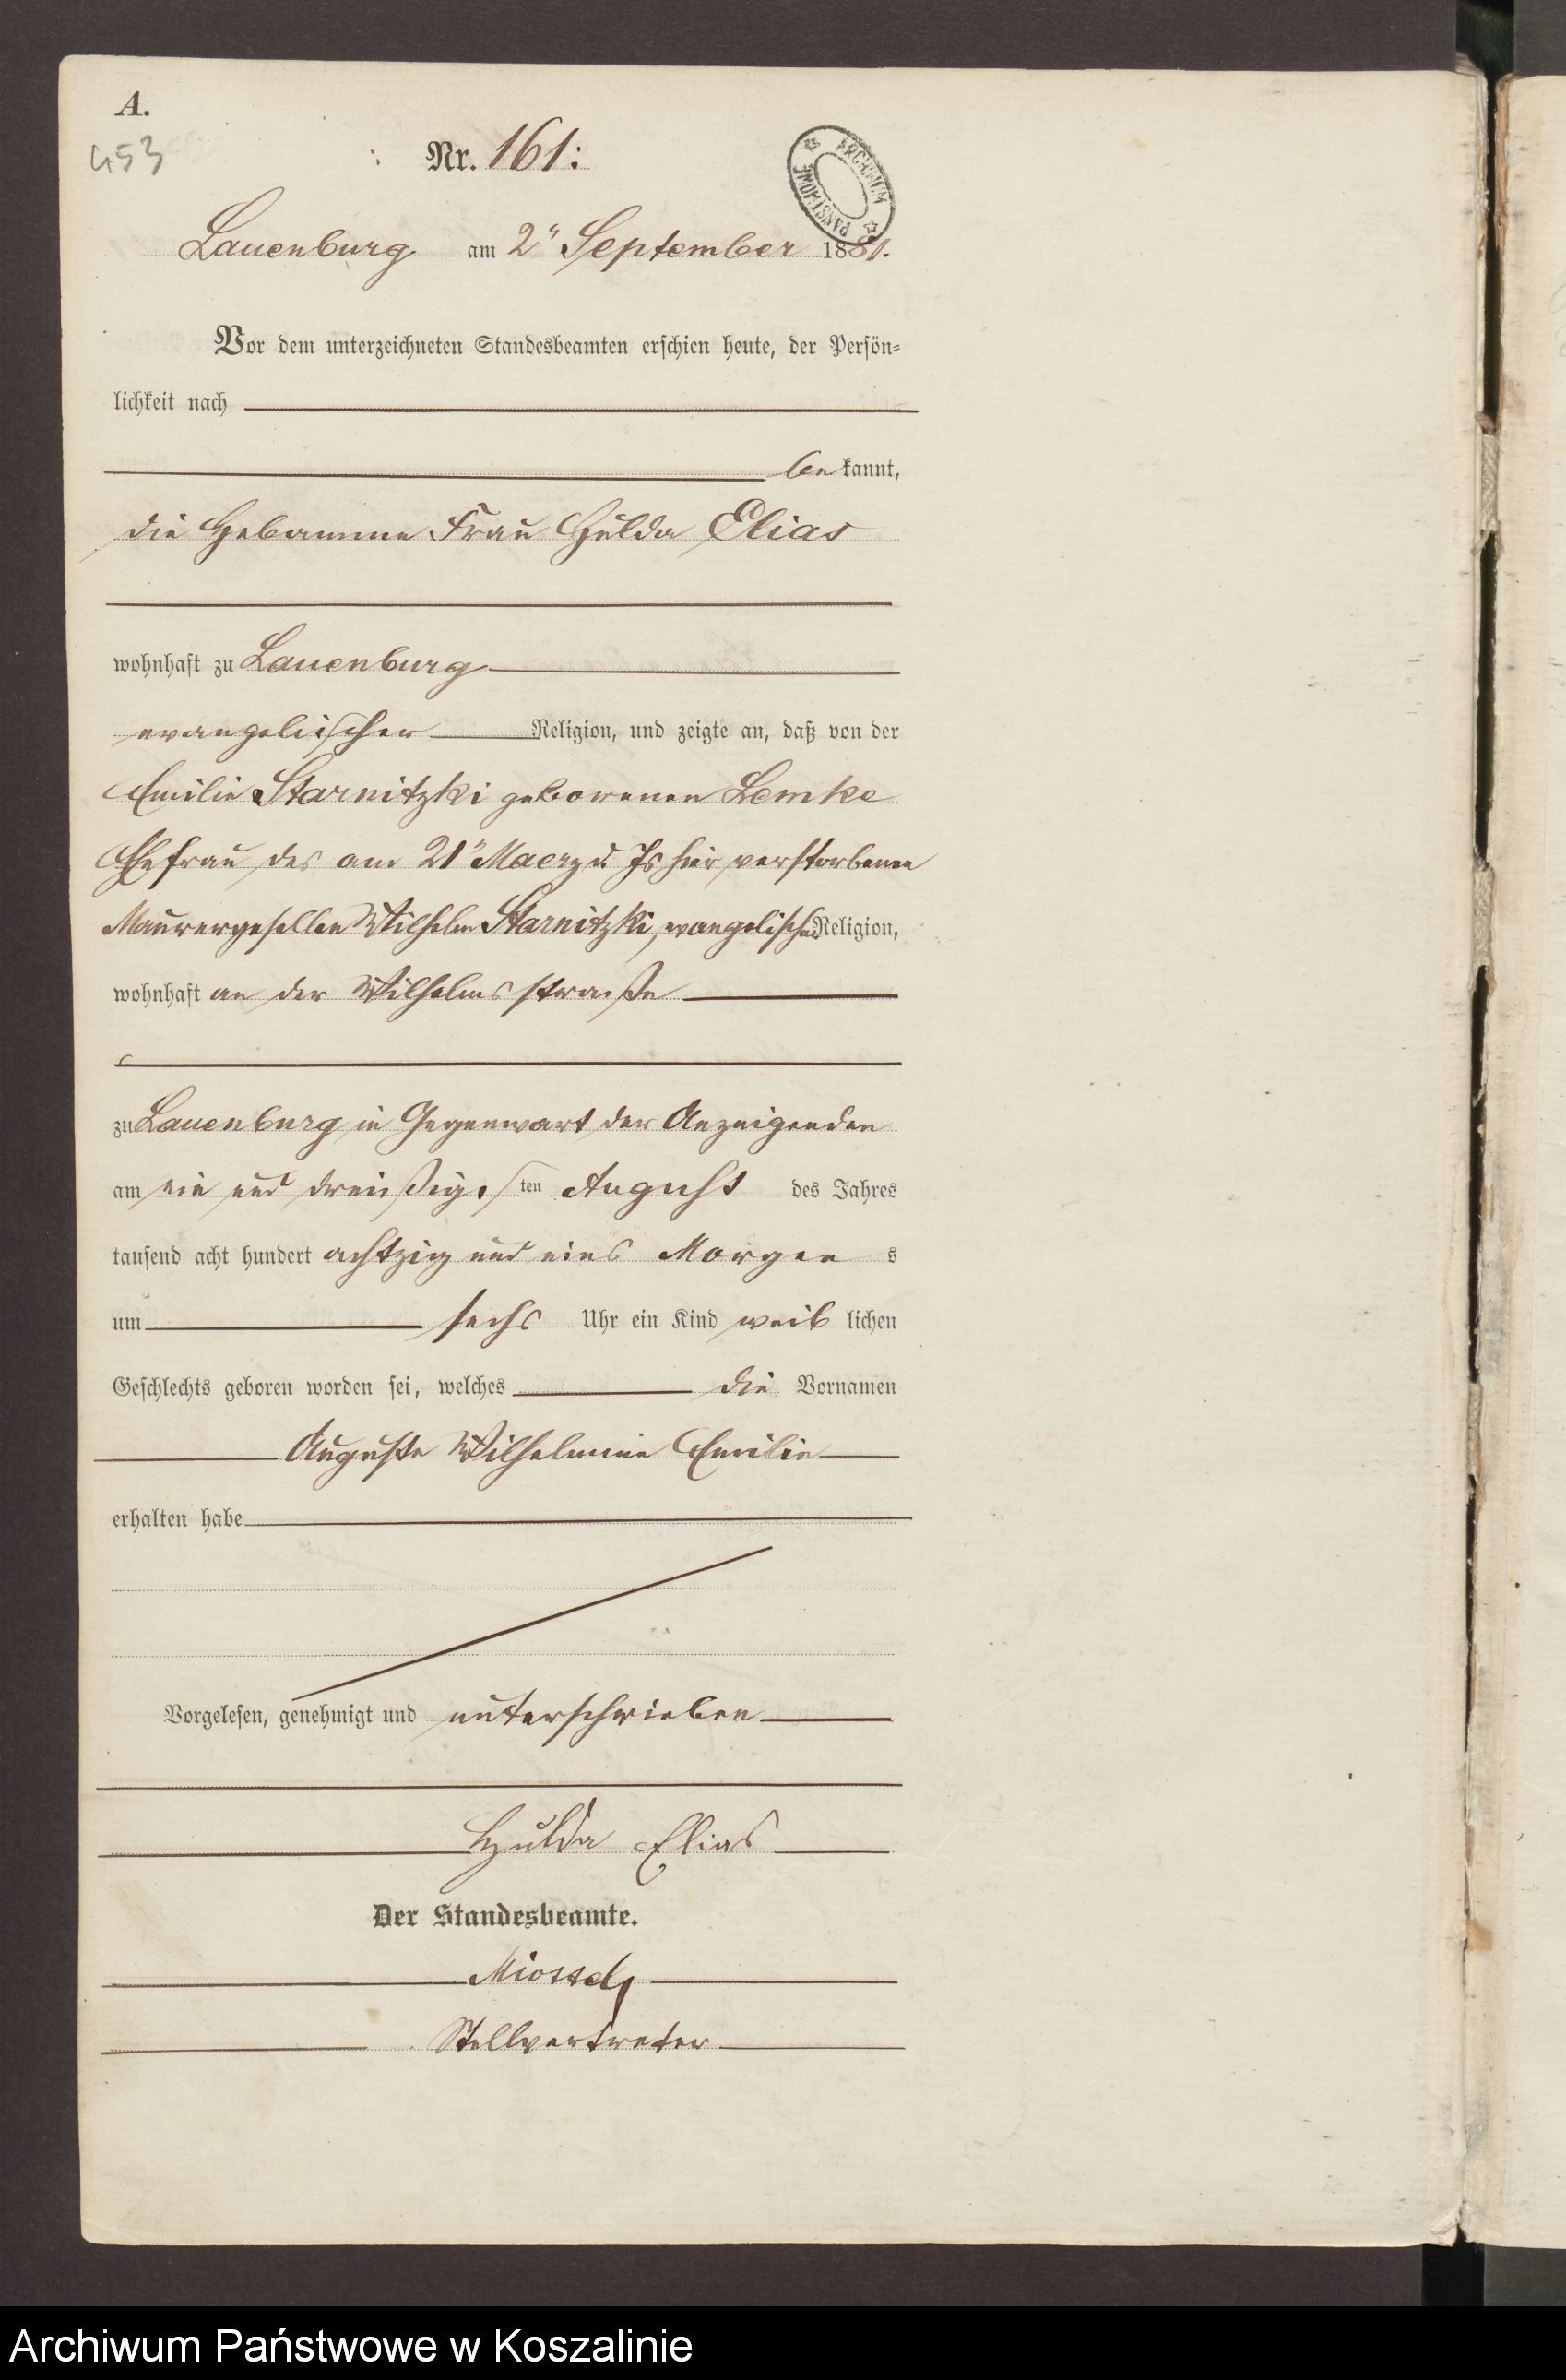 A.
453
Nr. 161:
ARCHIWUM PAŃSTWOWE
Lauenburg am 2" September 1881.
Vor dem unterzeichneten Standesbeamten erschien heute, der Persön-
lichkeit nach
be kannt,
die Hebamme Frau Hulda Elias
wohnhaft zu Lauenburg
evangelischer Religion, und zeigte an, daß von der
Emilie Starnitzki geborenen Lemke
Ehefrau des am 21" Maerz d. Js hier verstorbenen
Maurergesellen Wilhelm Starnitzki, evangelischer Religion,
wohnhaft an der Wilhelmsstraße
zu Lauenburg in Gegenwart der Anzeigenden
am ein und dreißigsten August des Jahres
tausend acht hundert achtzig und eins Morgen s
um sechs Uhr ein Kind weib lichen
Geschlechts geboren worden sei, welches die Vornamen
Auguste Wilhelmine Emilie
erhalten habe
Vorgelesen, genehmigt und unterschrieben
Hulda Elias
Der Standesbeamte.
Stellvertreter
Archiwum Państwowe w Koszalinie